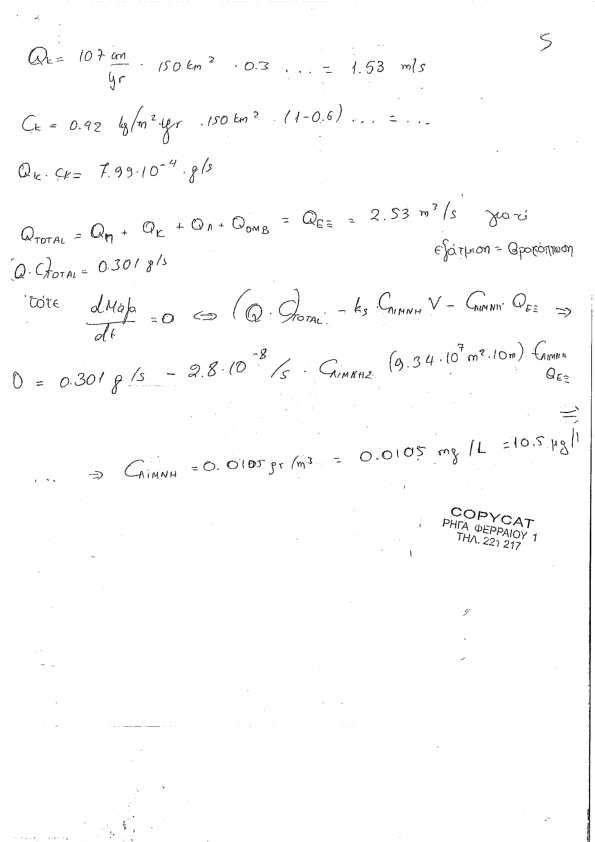 5
Qκ = 107 cm/yr · 150 km² · 0.3 ... = 1.53 m/s
Cκ = 0.42 kg/m² yr · 150 km² · (1-0.6) ... = ...
Qκ · Cκ = 7.99·10⁻⁴ · g/s
QTOTAL = QΠ + Qκ + QΛ + QΟΜΒ = QΕΞ = 2.53 m³/s γιατί
εξάτμιση = βροχόπτωση
(Q·C)TOTAL = 0.301 g/s
τότε dΜάζα/dt = 0 ⇔ (Q·C)TOTAL - ks · CΛΙΜΝΗ V - CΛΙΜΝΗ · QΕΞ ⇒
0 = 0.301 g/s - 2.8·10⁻⁸/s · CΛΙΜΝΗΣ (9.34·10⁷ m²·10m) - CΛΙΜΝΗ QΕΞ
⇒
... ⇒ CΛΙΜΝΗ = 0.0105 gr/m³ = 0.0105 mg/L = 10.5 μg/l
COPYCAT
ΡΗΓΑ ΦΕΡΡΑΙΟΥ 1
ΤΗΛ. 221 217